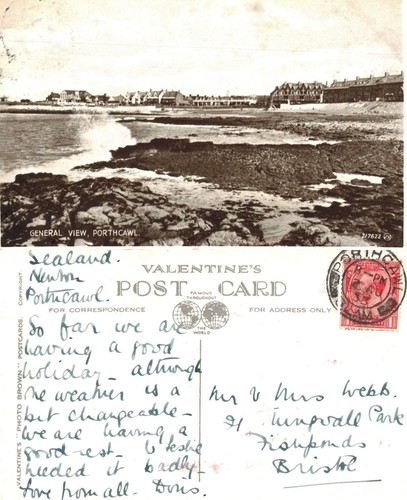 GENERAL VIEW, PORTHCAWL.
217622
Sealand.
Newton
Porthcawl.
VALENTINE'S
POST CARD
FAMOUS THROUGHOUT
THE WORLD
FOR CORRESPONDENCE
FOR ADDRESS ONLY
COPYRIGHT.
VALENTINE'S "PHOTO BROWN" POSTCARDS.
PORTHCAWL
So far we are
having a good
holiday - although
the weather is a
bit changeable -
we are having a
good rest - & Leslie
needed it badly
love from all. Doris.
Mr & Mrs Webb.
21 Park
Fishponds
Bristol